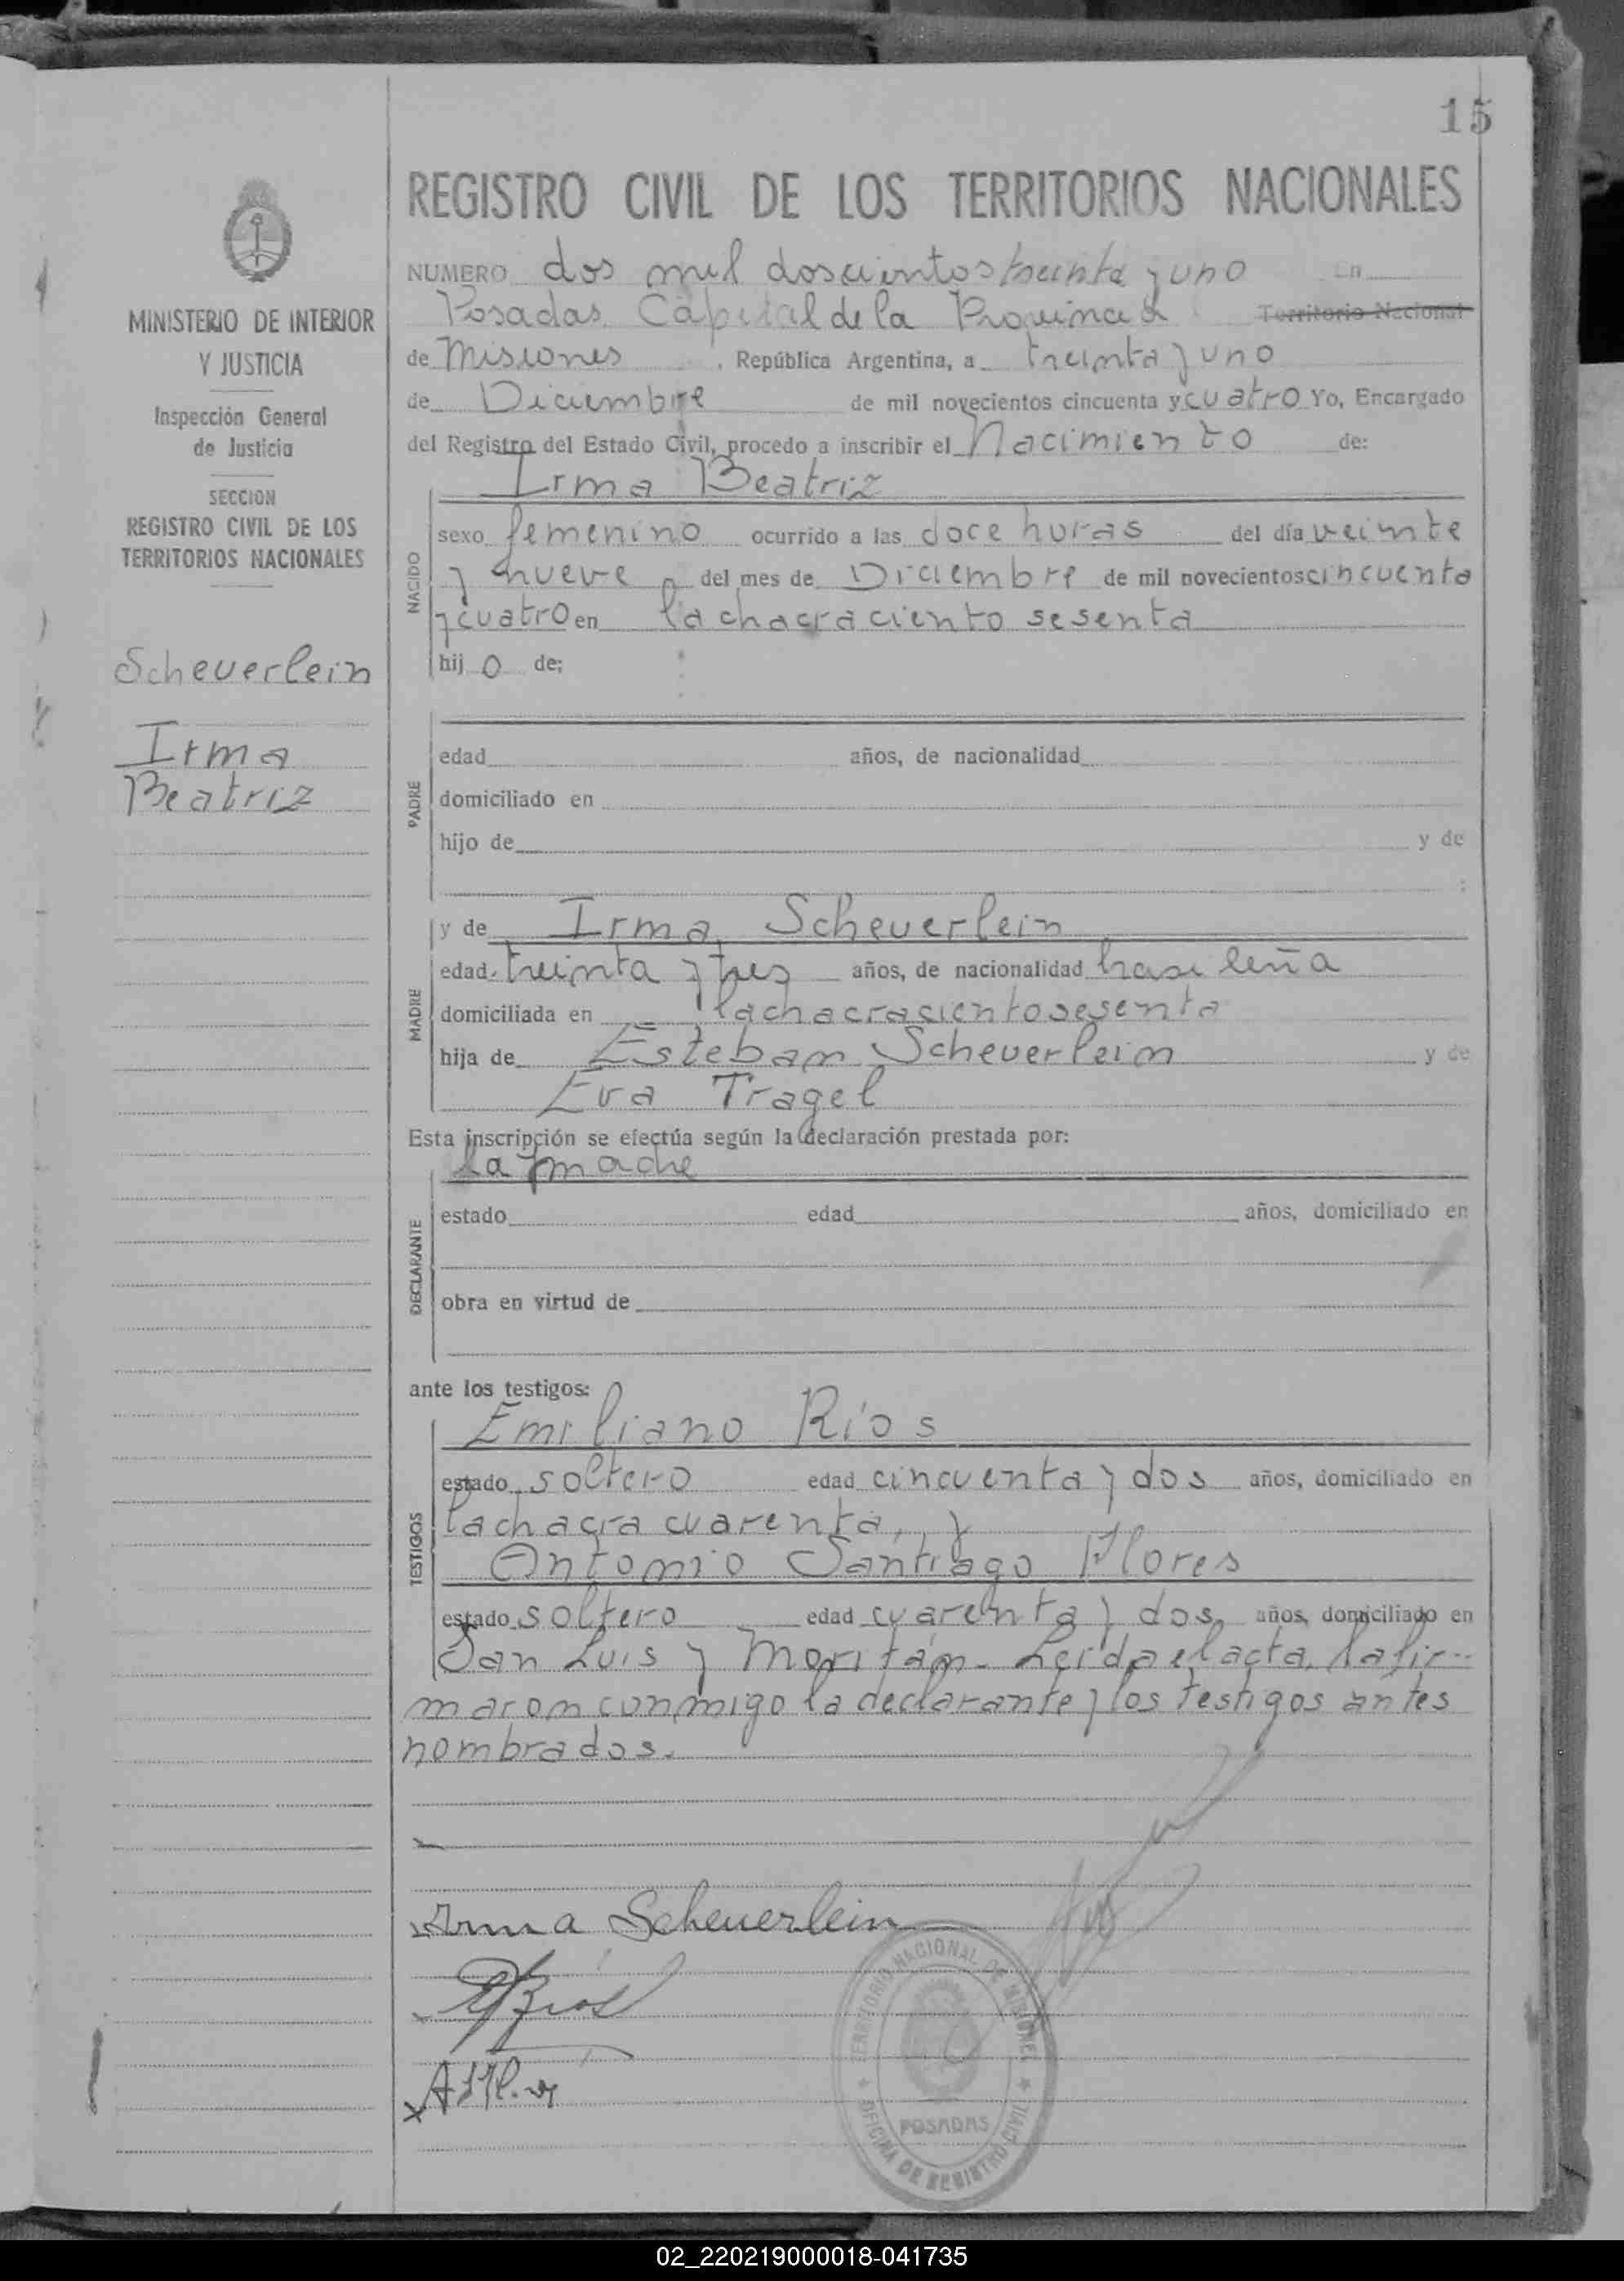 15
REGISTRO CIVIL DE LOS TERRITORIOS NACIONALES
MINISTERIO DE INTERIOR
Y JUSTICIA
Inspección General
de Justicia
SECCION
REGISTRO CIVIL DE LOS
TERRITORIOS NACIONALES
Scheuerlein
Irma
Beatriz
NUMERO dos mil doscientos treinta y uno En
Posadas Capital de la Provincia Territorio Nacional
de Misiones, República Argentina, a treinta y uno
de Diciembre de mil novecientos cincuenta y cuatro Yo, Encargado
del Registro del Estado Civil, procedo a inscribir el Nacimiento de:
Irma Beatriz
NACIDO
sexo femenino ocurrido a las doce horas del día veinte
y nueve del mes de Diciembre de mil novecientos cincuenta
y cuatro en la chacra ciento sesenta
hijo de;
PADRE
edad años, de nacionalidad
domiciliado en
hijo de y de
:
MADRE
y de Irma Scheuerlein
edad treinta y tres años, de nacionalidad brasileña
domiciliada en la chacra ciento sesenta
hija de Esteban Scheuerlein y de
Eva Tragel
Esta inscripción se efectúa según la declaración prestada por:
la madre
DECLARANTE
estado edad años, domiciliado en
obra en virtud de
ante los testigos:
Emiliano Ríos
TESTIGOS
estado soltero edad cincuenta y dos años, domiciliado en
la chacra cuarenta, y
Antonio Santiago Flores
estado soltero edad cuarenta y dos, años, domiciliado en
San Luis y Moritán. Leída el acta, la fir-
maron conmigo la declarante y los testigos antes
nombrados.
Irma Scheuerlein
ERíos
TERRITORIO NACIONAL DE MISIONES
POSADAS
OFICINA DE REGISTRO CIVIL
02_220219000018-041735